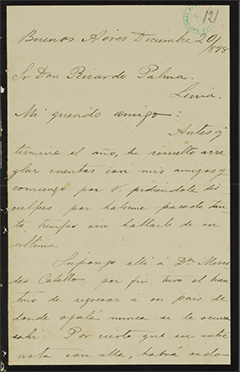 121
Buenos Aires Diciembre 20/898
Sr Don Ricardo Palma.
Lima.
Mi querido amigo:
Antes q
termine el año, he resuelto arre
glar cuentas con mis amigos y
comienzo por V. pidiendole dis
culpas por haberme pasado tan
to, tiempo sin hablarle de su
ultima
Supongo allí á Da. Merce
des Cabello por fin tuvo el buen
tino de regresar a su pais de
donde ojalá nunca se le ocurra
salir. Por cierto que su
con ella, habrá sido